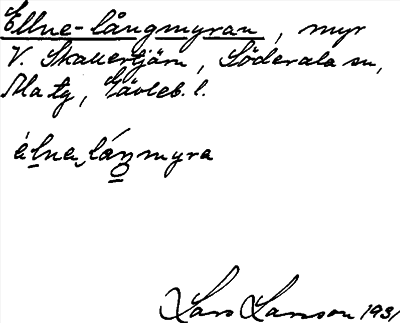 Ellne-långmyran, myr
V. Skallertjärn, Söderala sn,
Ma tg, Gävleb. l.
élnelåŋmyra
Lars Larsson 1931